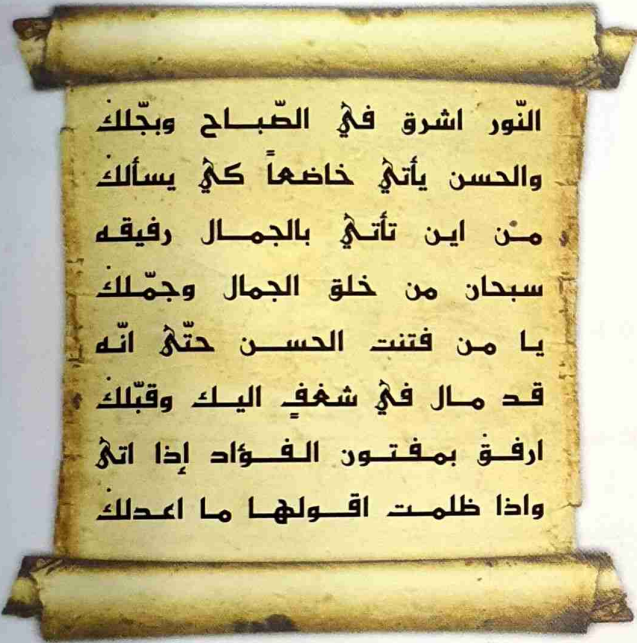 النّور اشرق في الصّباح وبجّلك
والحسن يأتي خاضعاً كي يسألك
من اين تأتي بالجمال رفيقه
سبحان من خلق الجمال وجمّلك
يا من فتنت الحسن حتّى انّه
قد مال في شغفٍ اليك وقبّلك
ارفق بمفتون الفؤاد إذا اتى
واذا ظلمت اقولها ما اعدلك